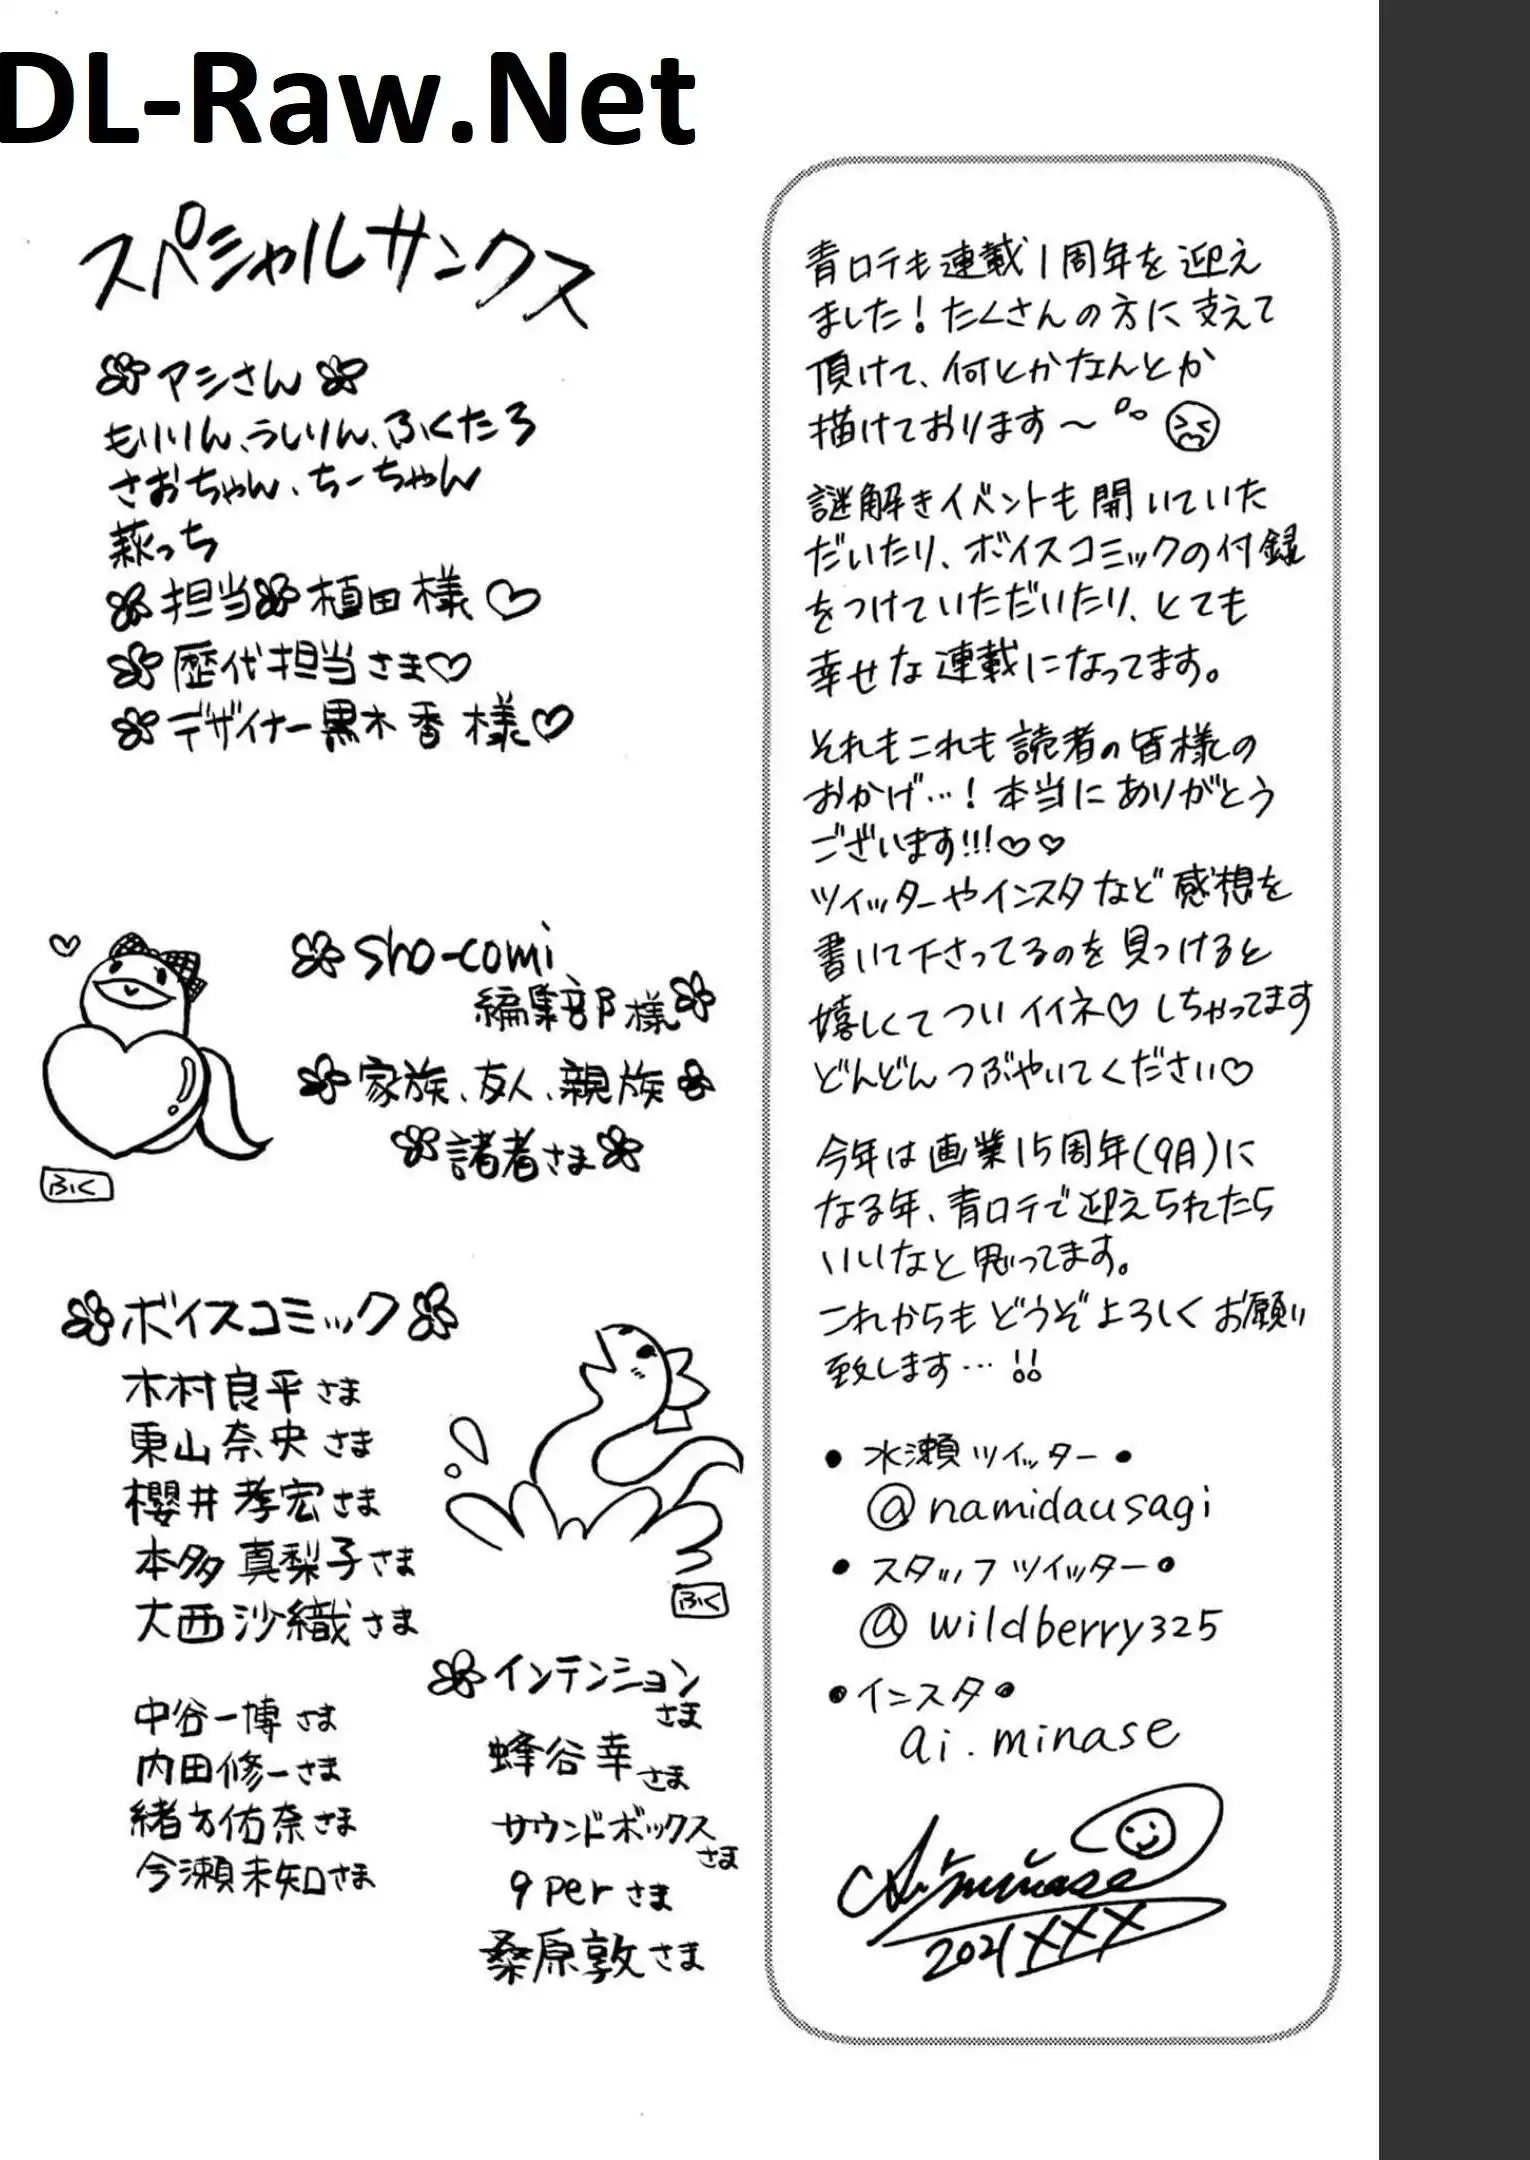 DL-Raw.Net
青ロテも連載1周年を迎え
ました!たくさんの方に支えて
頂けて、何とかなんとか
描けております〜
謎解きイベントも開いていた
だいたり、ボイスコミックの付録
をつけていただいたり、とても
幸せな連載になってます。
それもこれも読者の皆様の
おかげ…!本当にありがとう
ございます!!!♡♡
ツイッターやインスタなど感想を
書いて下さってるのを見つけると
嬉しくてついイイネ♡しちゃってます
どんどんつぶやいてください♡
今年は画業15周年(9月)に
なる年、青ロテで迎えられたら
いいなと思ってます。
これからもどうぞよろしくお願い
致します…!!
●水瀬ツイッター●
@namidausagi
●スタッフツイッター●
@wildberry325
●インスタ●
ai.minase
Ai minase
2021XXX
スペシャルサンクス
アシさん
もりりん、うしりん、ふくたろ
さおちゃん、ちーちゃん
萩っち
担当 植田様♡
歴代担当さま♡
デザイナー黒木香様♡
Sho-comi
編集部様
家族、友人、親族
諸者さま
ふく
ボイスコミック
木村良平さま
東山奈央さま
櫻井孝宏さま
本多真梨子さま
大西沙織さま
ふく
中谷一博さま
内田修一さま
緒方佑奈さま
今瀬未知さま
インテンション
さま
蜂谷幸さま
サウンドボックス
さま
9perさま
桑原敦さま